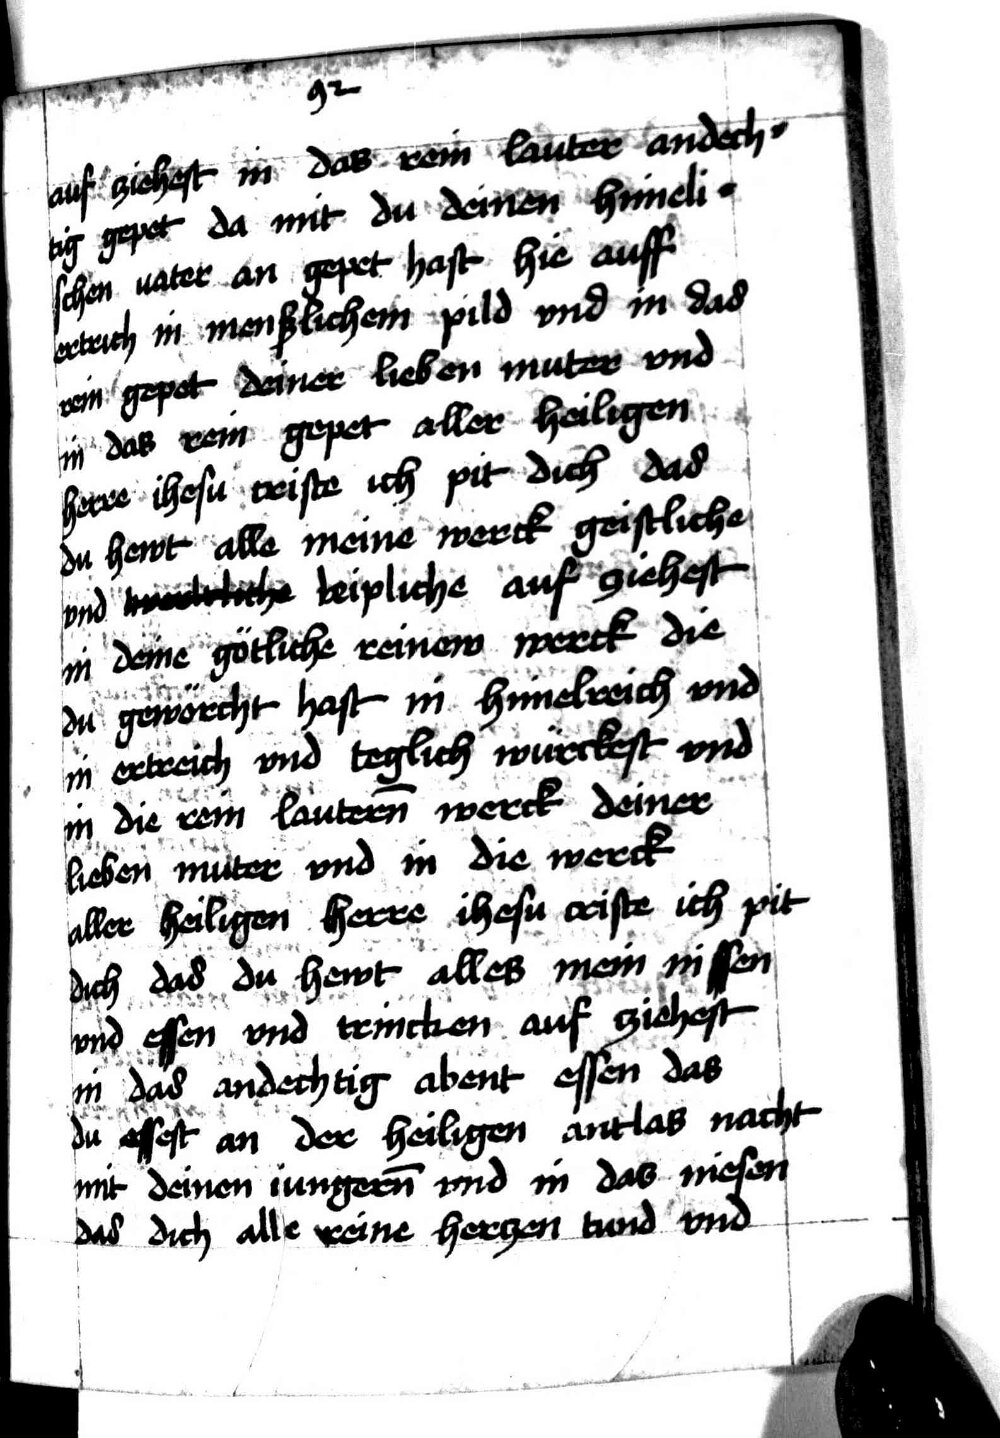 92
auf ziehest in das rein lauter andech-
tig gepet da mit du deinen himeli-
schen uater an gepet hast hie auff
ertrich in menßlichem pild vnd in das
rein gepet deiner lieben muter vnd
in das rein gepet aller heiligen
herre ihesu criste ich pit dich das
du hewt alle meine werck geistliche
vnd leipliche auf ziehest
in deine götliche reinew werck die
du gewörcht hast in himelreich vnd
in ertreich vnd teglich würckest vnd
in die rein lautern̄ werck deiner
lieben muter vnd in die werck
aller heiligen herre ihesu criste ich pit
dich das du hewt alles mein nissen
vnd essen vnd trincken auf ziehest
in das andechtig abent essen das
du essest an der heiligen antlas nacht
mit deinen iungern̄ vnd in das niesen
das dich alle reine herczen tund vnd